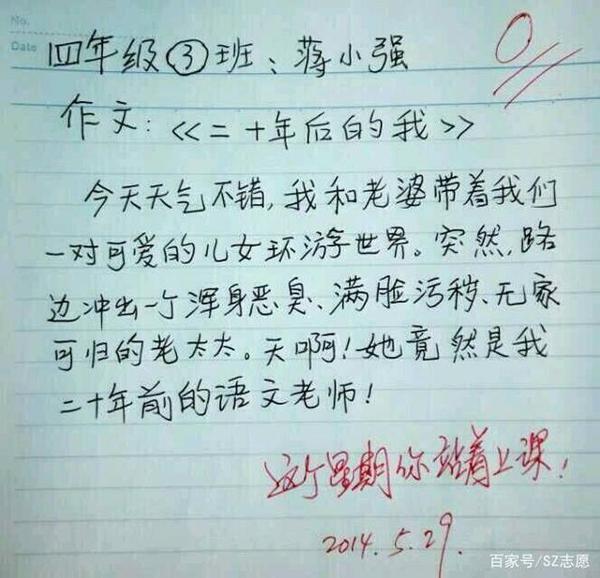 No.
Date
四年级③班：蒋小强
0
作文：《二十年后的我》
今天天气不错，我和老婆带着我们
一对可爱的儿女环游世界。突然，路
边冲出一个浑身恶臭、满脸污秽、无家
可归的老太太。天啊！她竟然是我
二十年前的语文老师！
这个星期你站着上课！
2014.5.29.
百家号/SZ志愿